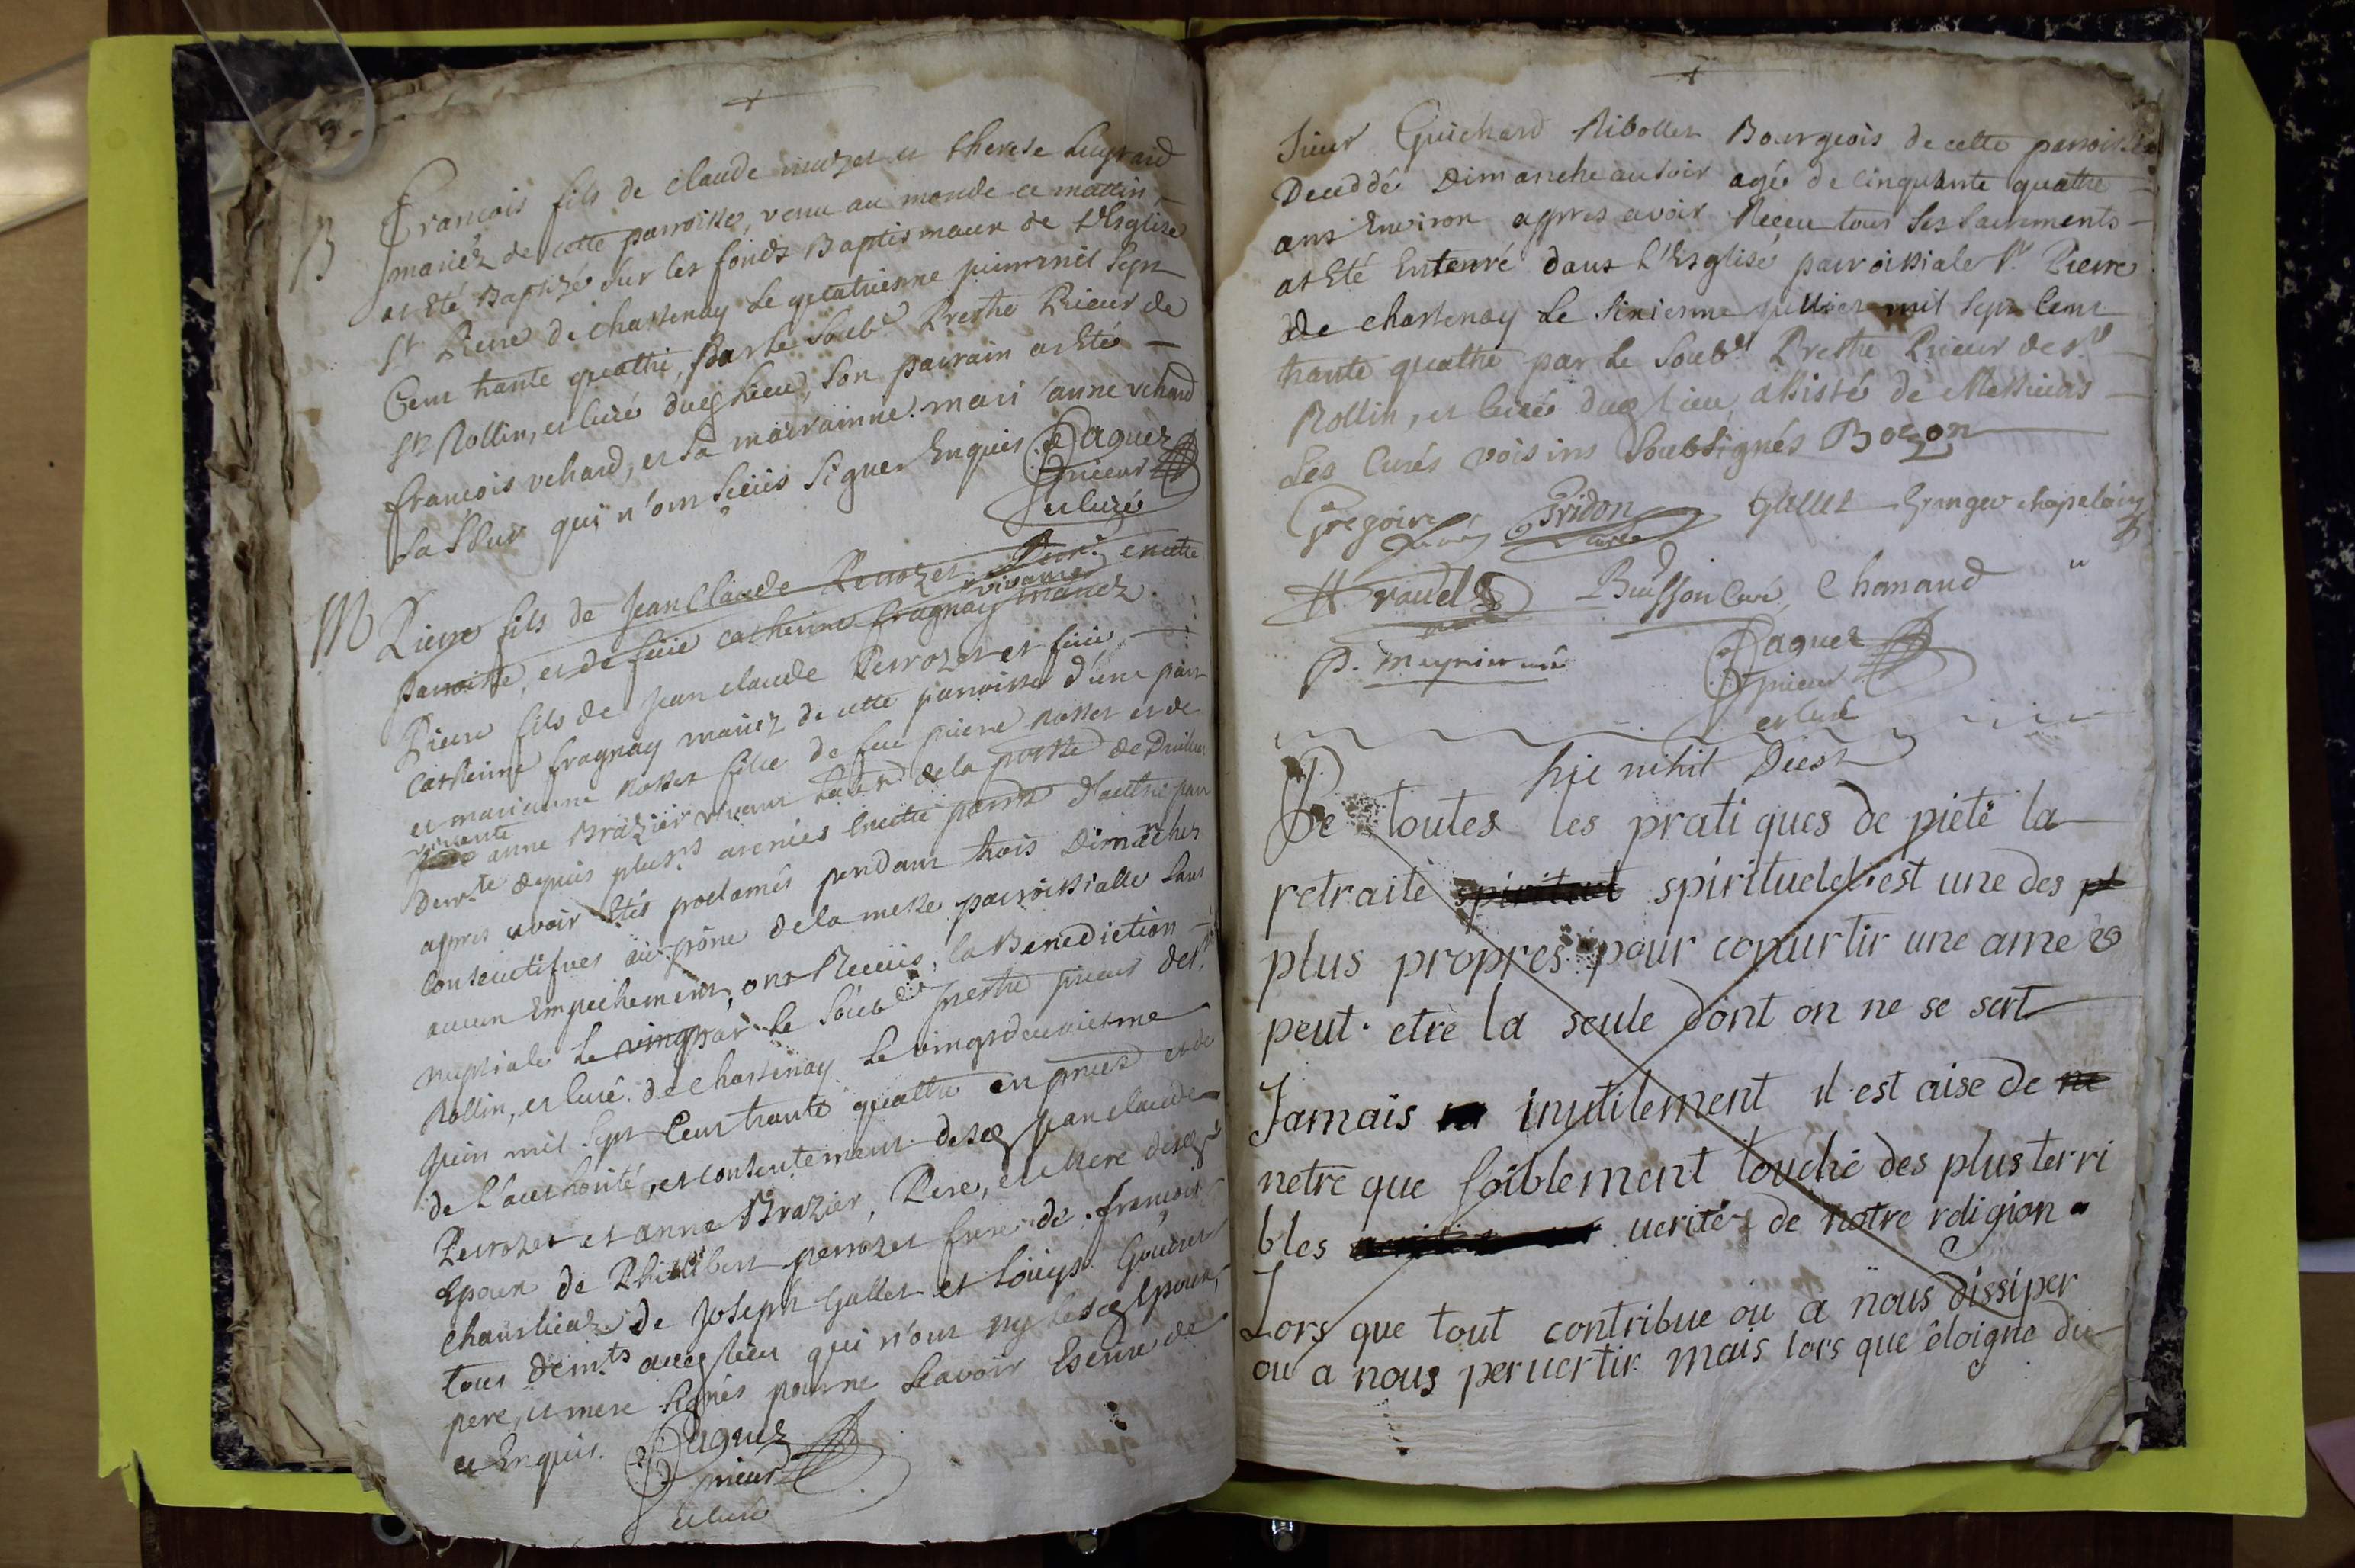 B
François fils de claude muzet et therese Lugrand
mariéz de cette parroisse, venu au monde ce mattin,
at Eté Baptizé sur les fonds Baptismaux de L'Esglise
St Pierre de chastenay Le quatriesme juin mil Sept
Cent trante quattre, Par le Soubs. Prestre Prieur de
St Rollin, et curé dud Lieu, son parrain at Eté
françois vehard, et sa marrainne mari anne vehard
sa Sœur qui n'ont Sceüs Signer Enquis Daguez
prieur
et curé
M
Pierre fils de Jean Claude Perrozet
parroisse, et de feüe catherine fragnay vivante mariez
Pierre fils de jean claude Perrozet et feüe
catherine fragnay mariez de cette parroisse d'une part
et mari anne Rosset fille de feu pierre Rosset et de
vivante
anne Brazier vivant de la
demte depuis plusrs années En cette parrse d'auttre part
appres avoir Etés proclamés pendant trois Dimanches
Consecutifves au prône de la messe parroissialle Sans
aucun Empeichement, ont Receüs la Benediction
nuptiale Le vingt par le Soubs. prestre prieur de St
Rollin, et curé de chastenay Le vingtdeuxiesme
juin mil Sept Cent trante quattre en et de
de L'authorité, et consentement desd jean claude
Perrozet et anne Brazier, Pere, et Mere desd
Epoux de Philibert perrozet frere de françois
de Joseph Gallet et Loüys
tous demts aud lieu qui n'ont ny lesd Epoux,
pere, et mere signés pour ne Scavoir
et Enquis. Daguez
prieur
et curé
Sieur Guichard Ribollet Bourgeois de cette parroisse
Deceddé Dimanche au soir agé de Cinquante quattre
ans Environ appres avoir Receu tous Ses Sacrements
at Eté Enterré dans L'Esglise parroissiale St. Pierre
de chastenay Le Sixiesme juillet mil Sept Cent
trante quattre par Le Soubs. Prestre Prieur de St
Rollin, et Curé dud lieu, assisté de Messieurs
Les Curés voisins Soubsignés Bozon
Gregoire Curé Fridon curé Gallet Granger chapelain
Buisson Curé, Chanand
P. Meynier curé Daguez
prieur
et curé
hic nihil Deest
De toutes les pratiques de piété la
retraite spirituel spirituelle est une des pl
plus propres pour conuertir une ame &
peut-etre la seule dont on ne se sert
Jamais inutilement il est aise de ne
netre que foiblement touché des plus terri
bles uerités de notre religion
Lors que tout contribue ou a nous dissiper
ou a nous peruertir mais lors que êloigne du